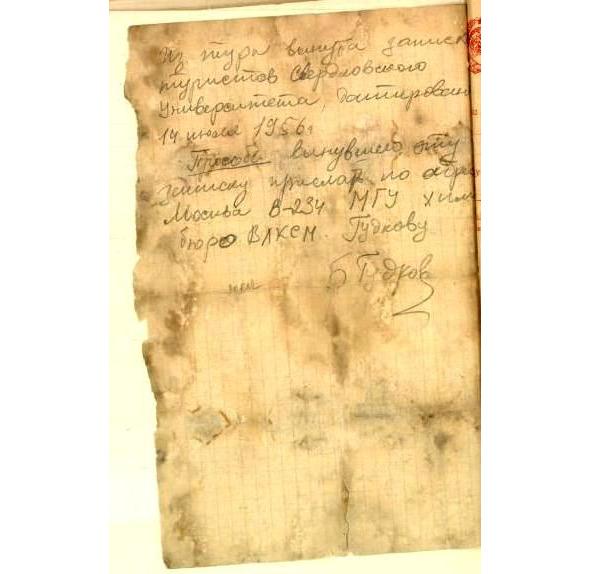 Из тура вынута записка
туристов Свердловского
Университета, датирована
14 июля 1956г
Просьба вынувшего эту
записку прислать по адресу
Москва В-234 МГУ хим
бюро ВЛКСМ. Гудкову
Б Гудков